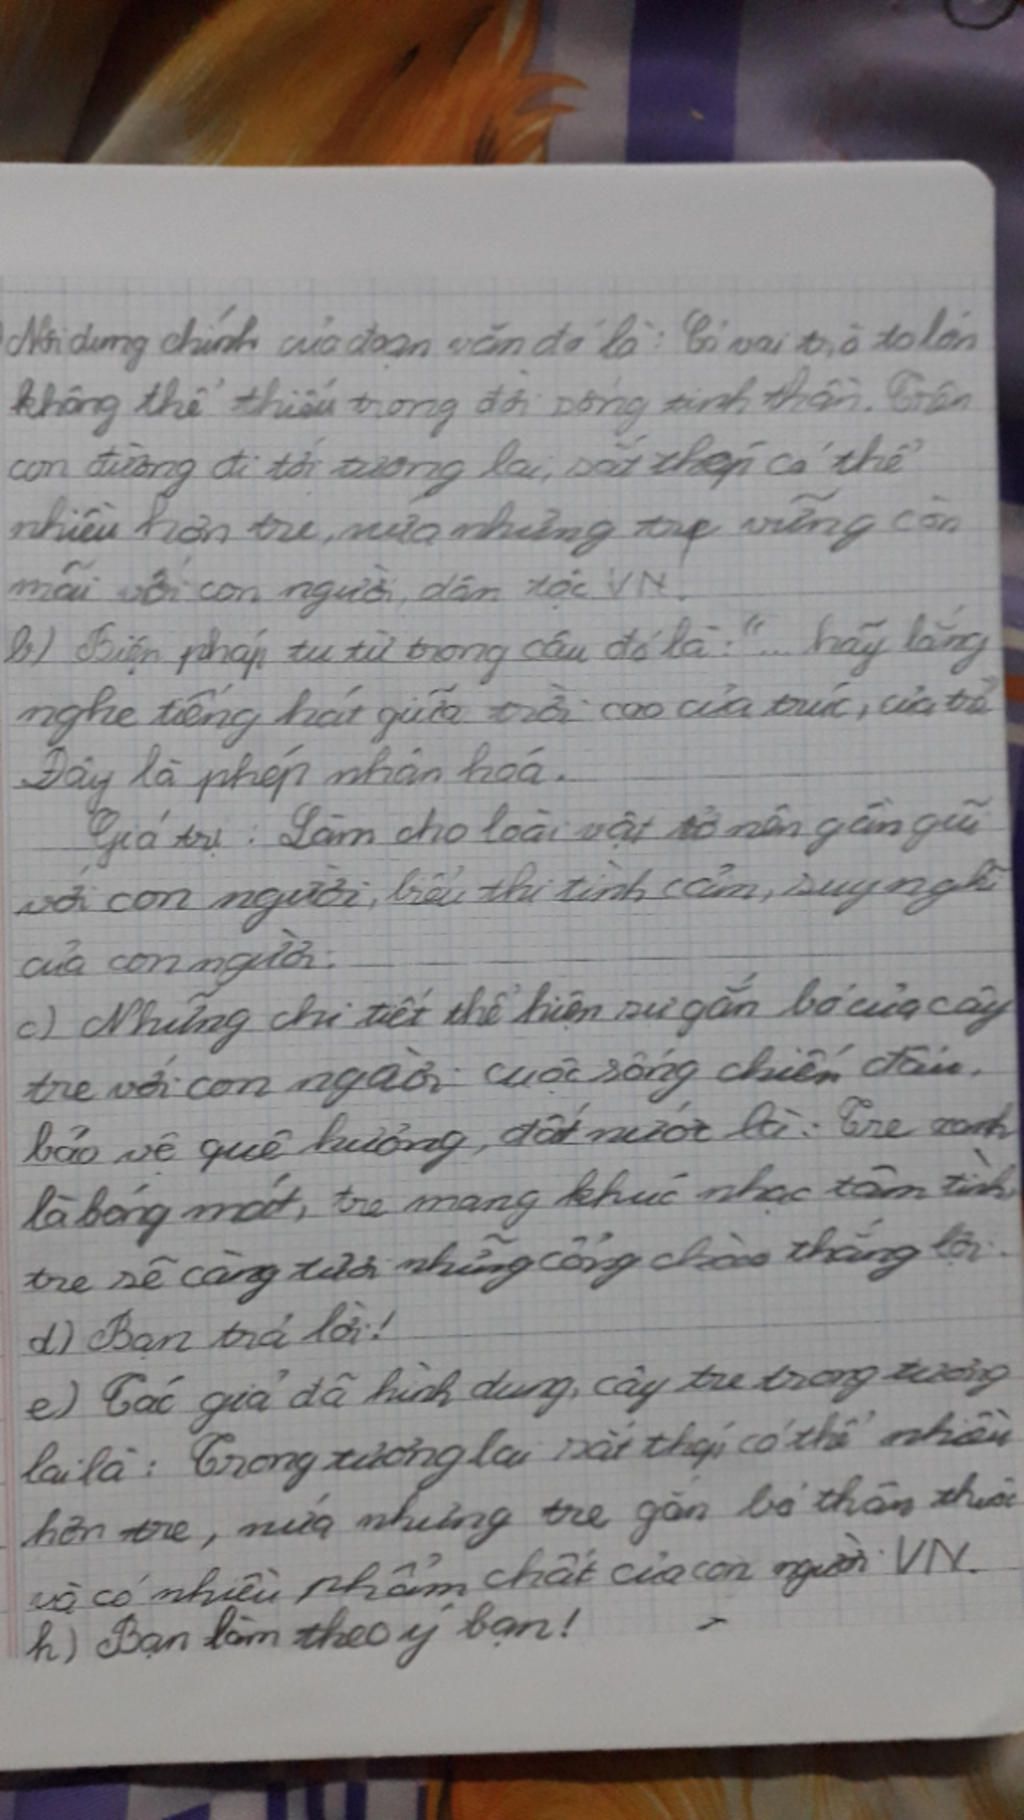 Nội dung chính của đoạn văn đó là: Có vai trò to lớn
không thể thiếu trong đời sống tinh thần. Trên
con đường đi tới tương lai, sắt thép có thể
nhiều hơn tre, nứa nhưng tre vững còn
mãi với con người, dân tộc VN.
b) Biện pháp tu từ trong câu đó là: "... hãy lắng
nghe tiếng hát giữa trời cao của trúc, của tre
Đây là phép nhân hoá.
Giá trị: Làm cho loài vật trở nên gần gũi
với con người, biểu thị tình cảm, suy nghĩ
của con người.
c) Những chi tiết thể hiện sự gắn bó của cây
tre với con người cuộc sống chiến đấu,
bảo vệ quê hương, đất nước là: Tre xanh
là bóng mát, tre mang khúc nhạc tâm tình,
tre sẽ càng tươi những cổng chào thắng lợi.
d) Bạn trả lời!
e) Tác giả đã hình dung, cây tre trong tương
lai là: Trong tương lai sắt thép có thể nhiều
hơn tre, nứa nhưng tre gắn bó thân thuộc
và có nhiều phẩm chất của con người VN.
h) Bạn làm theo ý bạn!